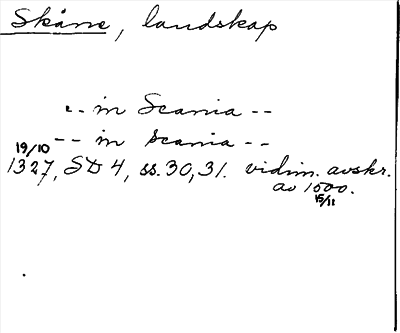 Skåne, landskap
-- in Scania --
-- in Scania --
19/10
1327, SD 4, ss. 30, 31. vidim. avskr.
av 1500.
15/11